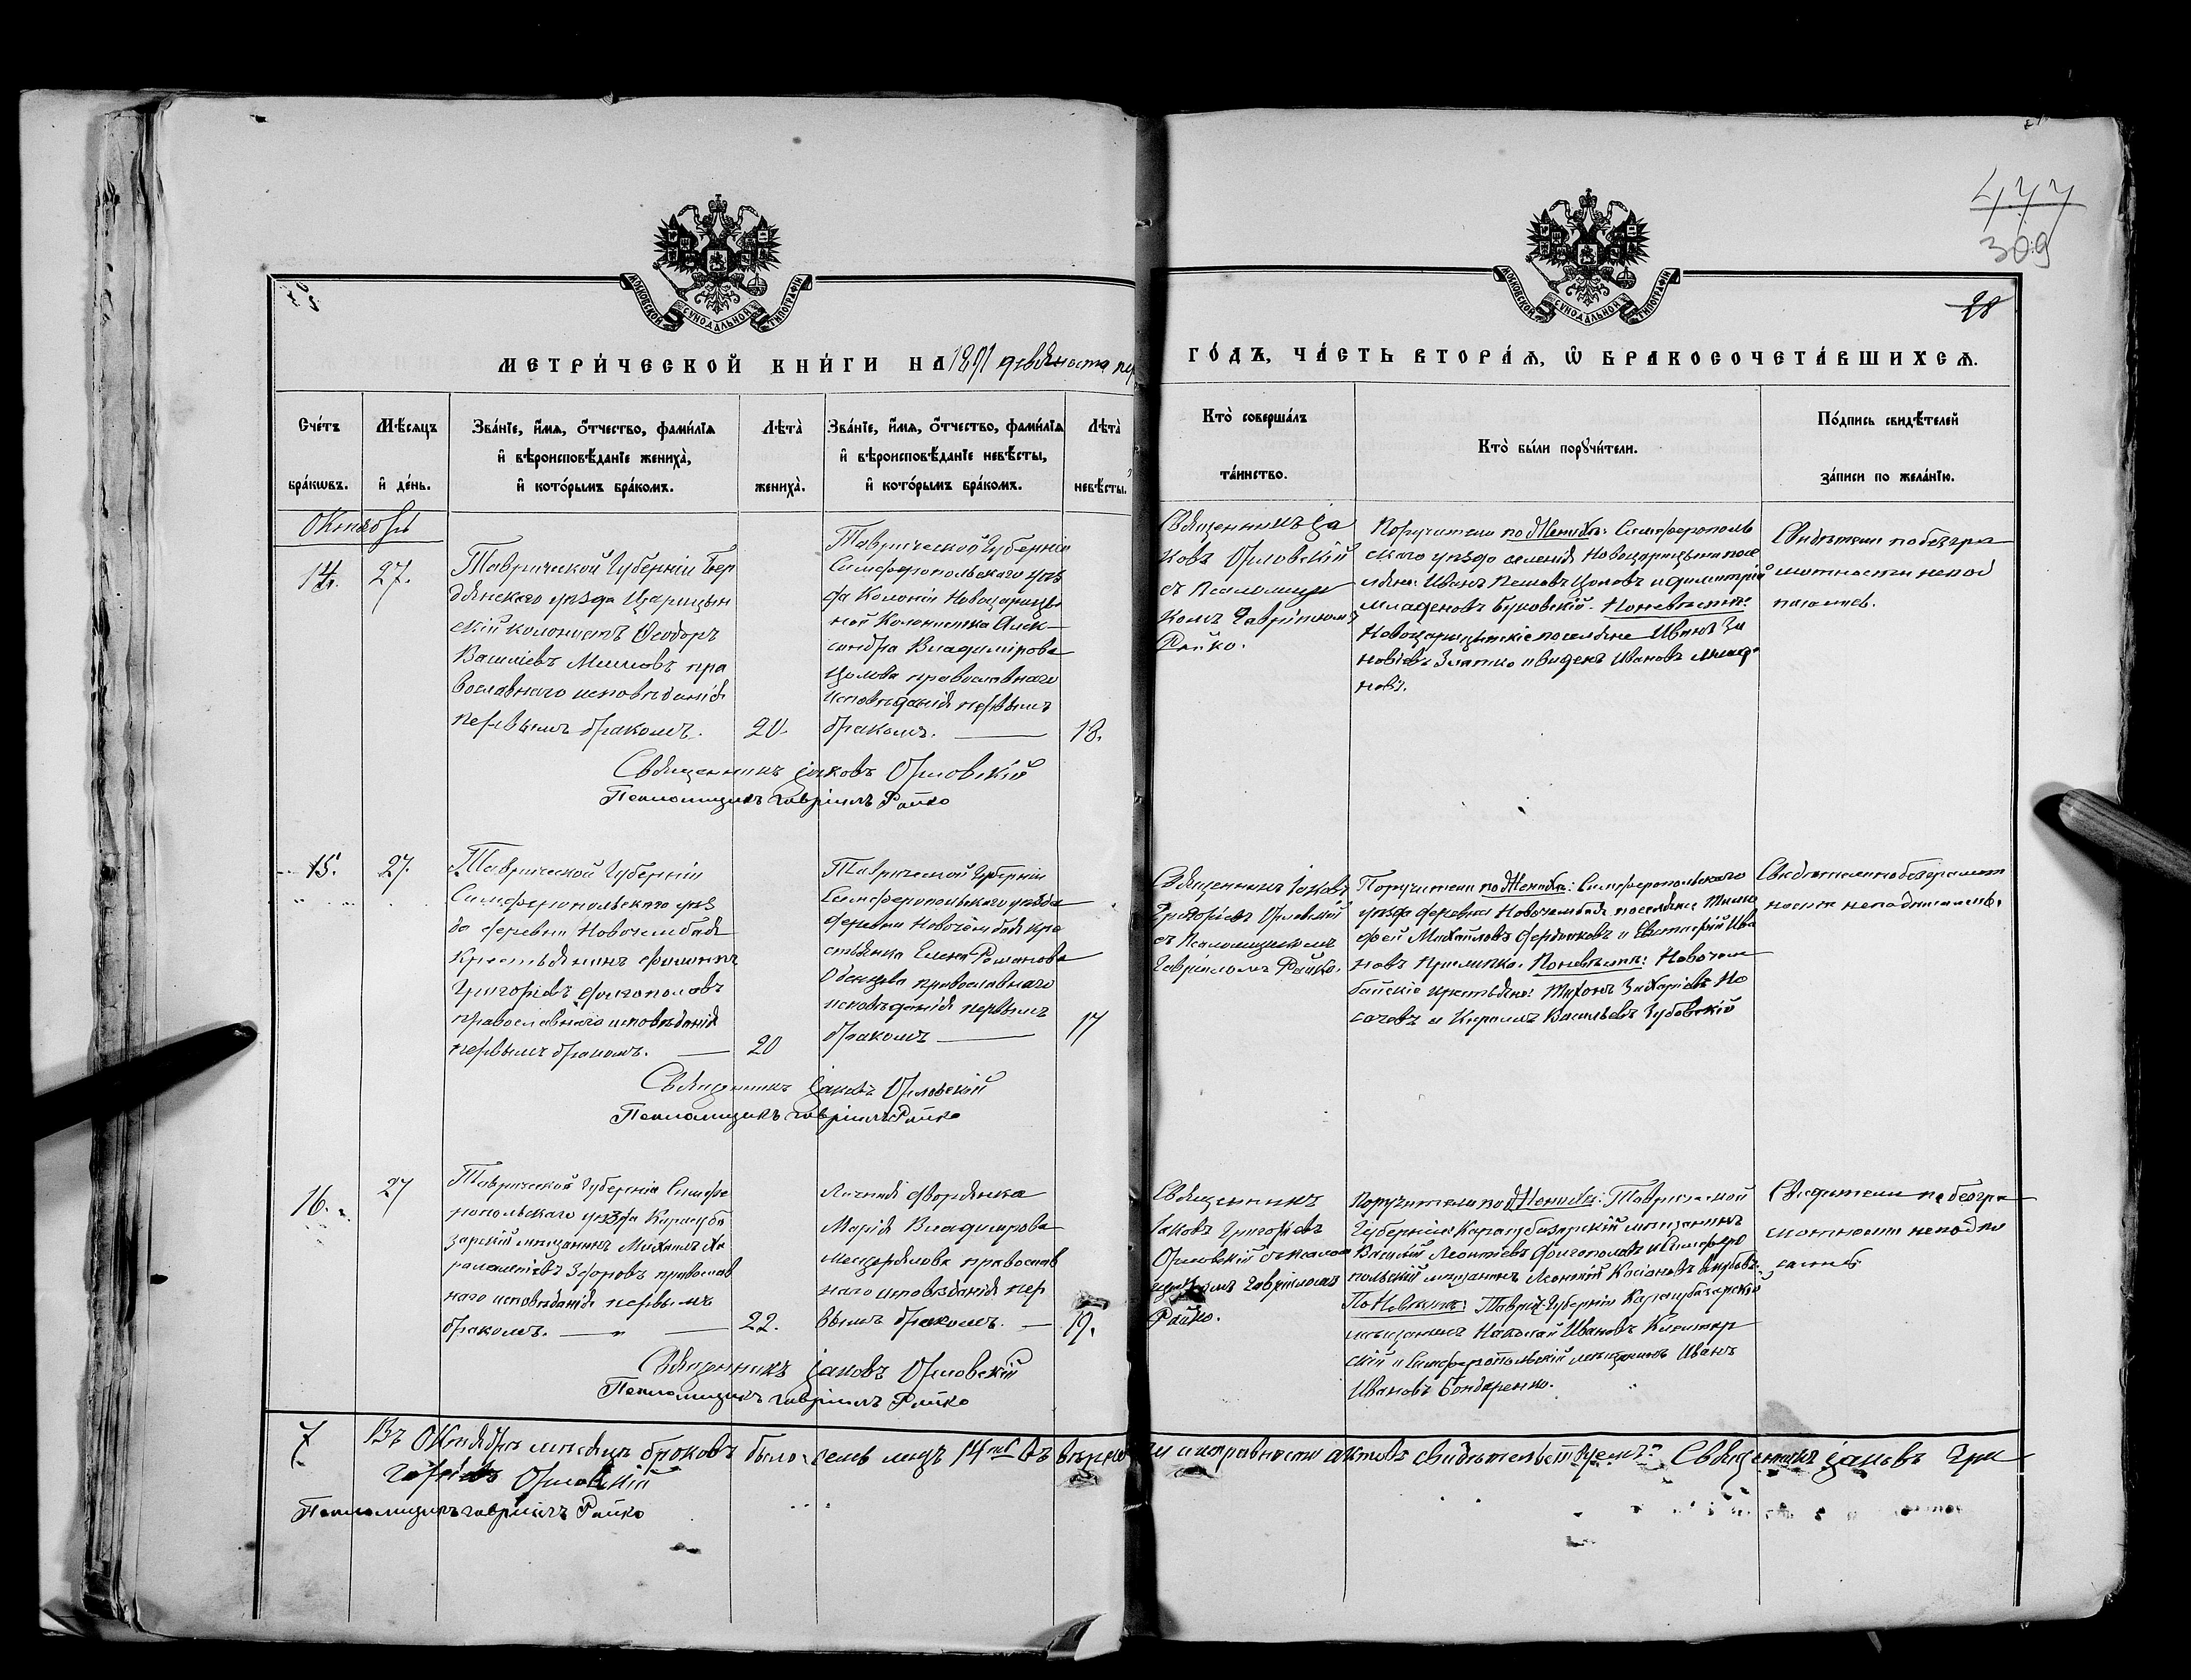 477
309
28
МОСКОВСКОЙ СѴНОДАЛЬНОЙ ТИПОГРАФІИ
МОСКОВСКОЙ СѴНОДАЛЬНОЙ ТИПОГРАФІИ
МЕТРИ́ЧЕСКОЙ КНИ́ГИ НА 1891 девяноста пер
ГО́ДЪ, ЧА́СТЬ ВТОРА́Я, Ѽ БРАКОСОЧЕТА́ВШИХСЯ.
Сче́тъ
бра́кѡвъ.
Мѣ́сяцъ
и҆ де́нь.
Зва́нїе, и҆́мя, ѻ҆́тчество, фами́лїя
и҆ вѣроисповѣ́данїе жениха̀,
и҆ кото́рымъ бра́комъ.
Лѣ́та̀
жениха̀.
Зва́нїе, и҆́мя, ѻ҆́тчество, фами́лїя
и҆ вѣроисповѣ́данїе невѣ́сты,
и҆ кото́рымъ бра́комъ.
Лѣ́та̀
невѣ́сты.
Кто̀ соверша́лъ
та́инство.
Кто̀ бы́ли порꙋчи́тели.
По́дпись свидѣ́телей
за́писи по жела́нїю.
Октябрь
14.
27.
Таврической Губерніи Бер
дянскаго уѣзда Царицын
скій колонистъ Ѳеодоръ
Василіевъ пра
вославнаго исповѣданія
первымъ бракомъ.
20.
Таврической Губерніи
Симферопольскаго уѣз
да Колоніи Новоцарицы
ной Колонистка Алек
сандра Владимірова
Цолова православнаго
исповѣданія первымъ
бракомъ.
18.
Священникъ Іа
ковъ Орловскій
съ Псаломщи
комъ Гавріиломъ
Райко.
Поручители по Женихѣ: Симферополь
скаго уѣзда селенія Новоцарицына посе
ляне: Иванъ Цоловъ и Димитрій
Младеновъ Буковскій. По невѣстѣ:
Новоцарицынскіе поселяне Иванъ За
Златко и Виденъ Ивановъ Млад
новъ.
Свидѣтели по безгра
мотности непод
писались.
Священникъ Іаковъ Орловскій
Псаломщикъ Гавріилъ Райко
15.
27.
Таврической Губерніи
Симферопольскаго уѣз
да деревни
Крестьянинъ Филиппъ
Григоріевъ
православнаго исповѣданія
первымъ бракомъ.
20
Таврической Губерніи
Симферопольскаго уѣзда
деревни кре
стьянка Елена Романова
православнаго
исповѣданія первымъ
бракомъ
17
Священникъ Іаковъ
Григоріевъ Орловскій
съ Псаломщикомъ
Гавріиломъ Райко.
Поручители по Женихѣ: Симферопольскаго
уѣзда деревни поселяне Тимо
фей Михайловъ и Евстафій Ива
новъ Прилипко. По невѣстѣ:
крестьяне: Тихонъ Захаріевъ Но
и Кириллъ Васильевъ Зубовскій
Свидѣтели по безграмот
ности неподписались.
Священникъ Іаковъ Орловскій
Псаломщикъ Гавріилъ Райко
16.
27
Таврической Губерніи Симфе
ропольскаго уѣзда Карасуба
зарскій мѣщанинъ Михаилъ Ха
православ
наго исповѣданія первымъ
бракомъ.
22.
Личная дворянка
Марія Владимірова
Мещерякова православ
наго исповѣданія пер
вымъ бракомъ.
19.
Священникъ
Іаковъ Григоріевъ
Орловскій съ псалом
щикомъ Гавріиломъ
Райко.
Поручители по Женихѣ: Таврической
Губерніи Карасубазарскій мѣщанинъ
Василій Леонтіевъ и Симферо
польскій мѣщанинъ Леонтій Касіановъ
По Невѣстѣ: Таврич. Губерніи Карасубазарскій
мѣщанинъ Николай Ивановъ
скій и Симферопольскій мѣщанинъ Иванъ
Ивановъ Бондаренко.
Свидѣтели по безгра
мотности неподпи
сались
Священникъ Іаковъ Орловскій
Псаломщикъ Гавріилъ Райко
7
Въ Октябрѣ мѣсяцѣ браковъ было семь лицъ 14ть Въ вѣрнос
ти и исправности актовъ свидѣтельствуемъ: Священникъ Іаковъ Гри
горіевъ Орловскій
Псаломщикъ Гавріилъ Райко